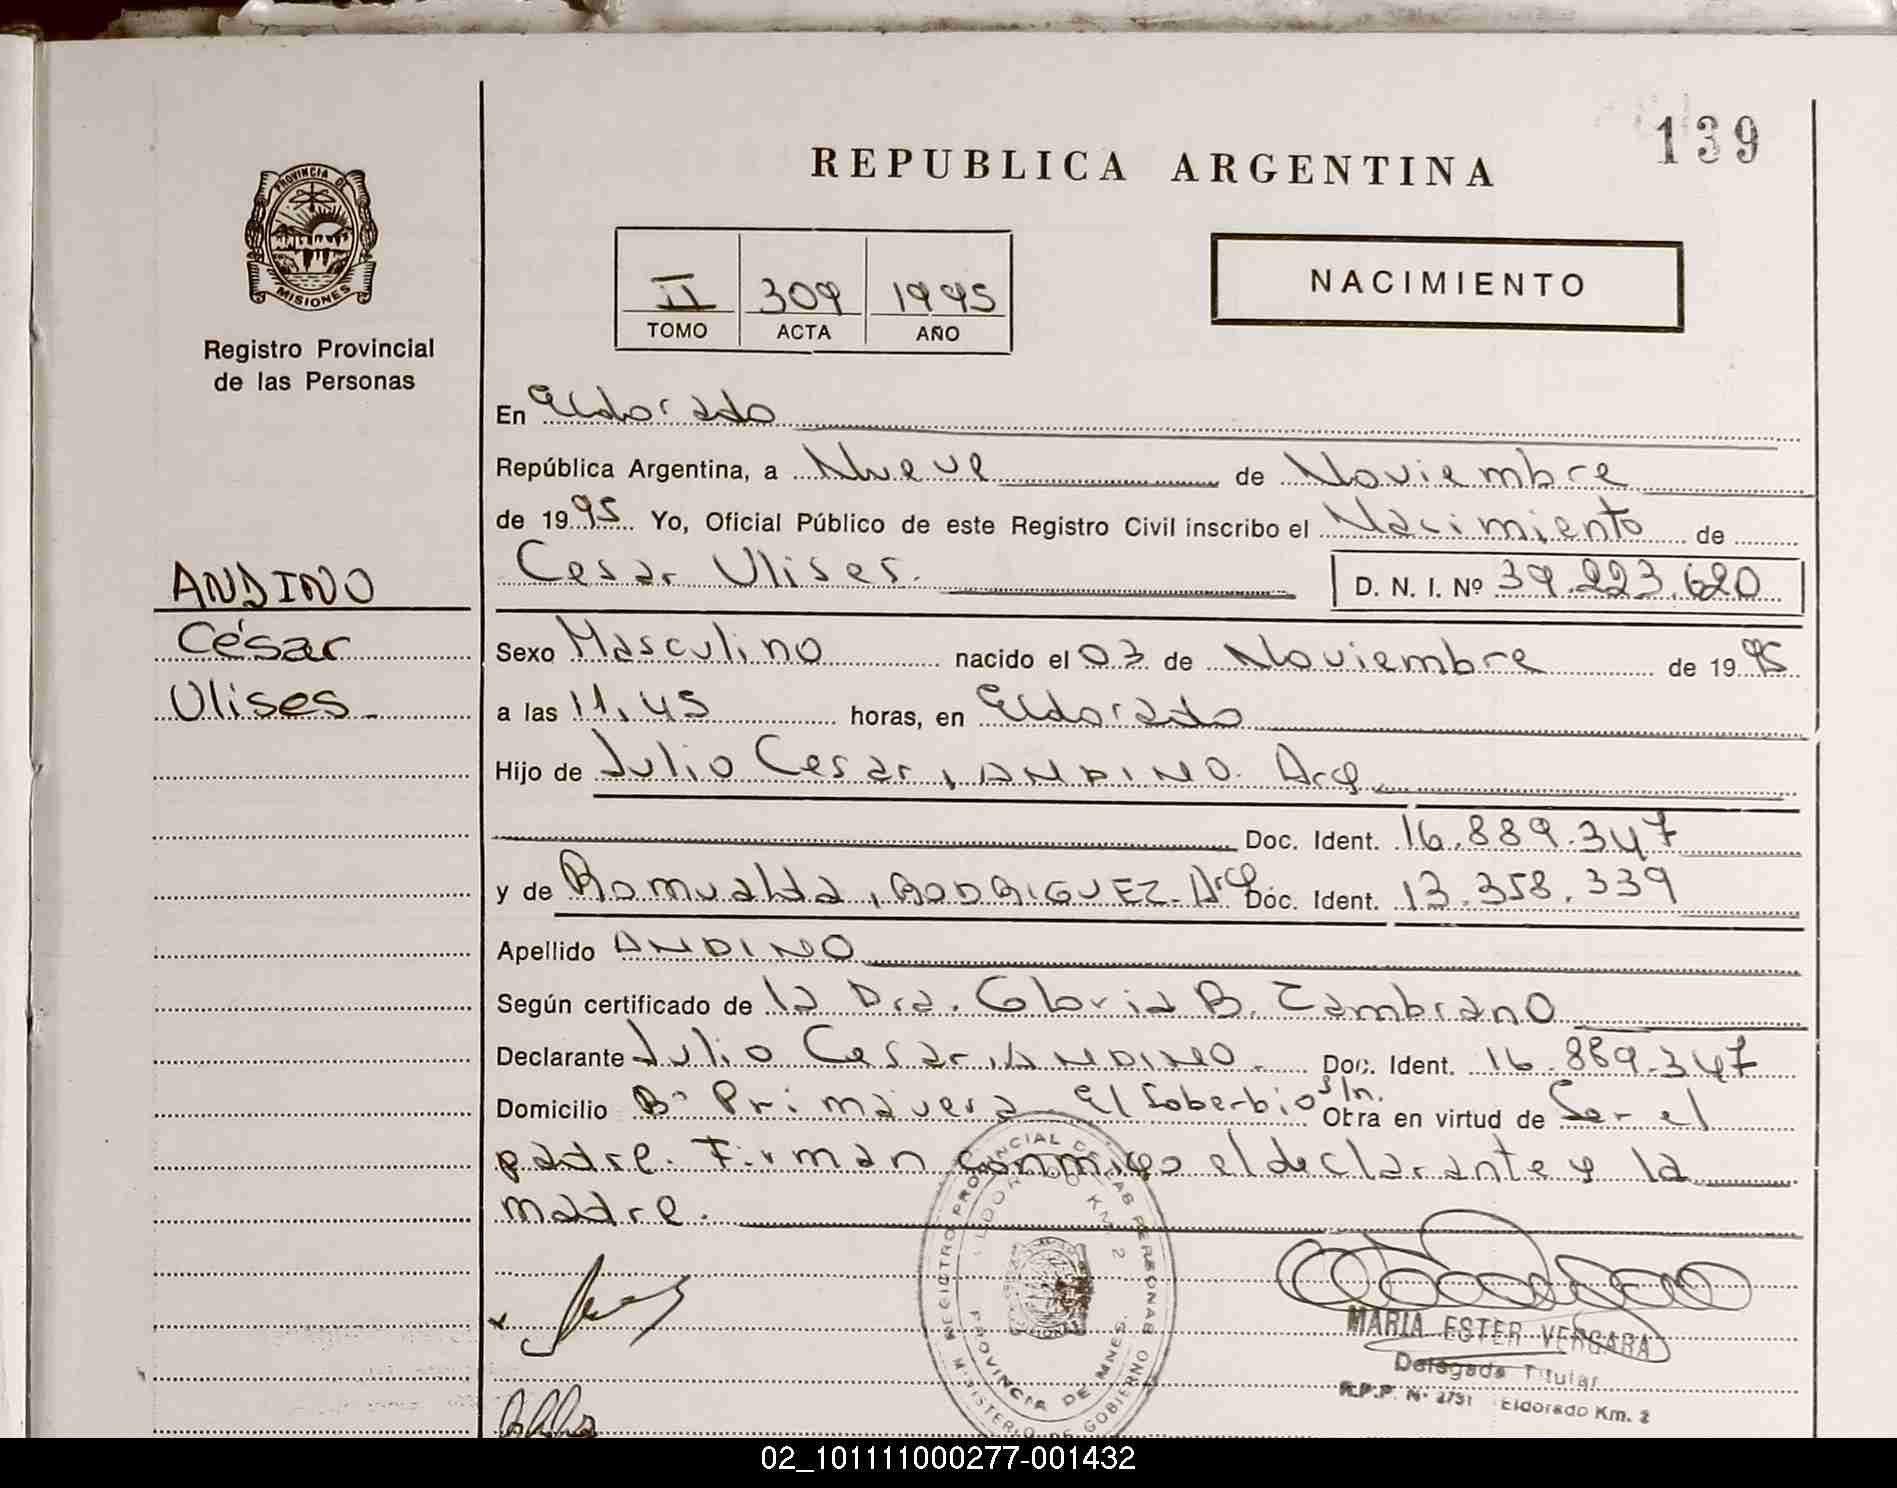 139
REPUBLICA ARGENTINA
PROVINCIA DE
MISIONES
Registro Provincial
de las Personas
II 309 1995
TOMO ACTA AÑO
NACIMIENTO
En Eldorado
República Argentina, a Nueve de Noviembre
de 1995 Yo, Oficial Público de este Registro Civil inscribo el Nacimiento de
Cesar Ulises. D. N. I. Nº 39.223.620
ANDINO
César
Ulises
Sexo Masculino nacido el 03 de Noviembre de 1995
a las 11,45 horas, en Eldorado
Hijo de Julio Cesar, ANDINO. Arg.
Doc. Ident. 16.889.347
y de Romualda, RODRIGUEZ. Arg Doc. Ident. 13.358.339
Apellido ANDINO
Según certificado de la Dra. Gloria B. Zambrano
Declarante Julio Cesar, ANDINO. Doc. Ident. 16.889.347
Domicilio Bº Primavera El Soberbio s/n. Otra en virtud de Ser el
padre. Firman conmigo el declarante y la
madre.
PROVINCIA DE MNES.
MINISTERIO DE GOBIERNO
KM 2
MARIA ESTER VERGARA
Delegada Titular
R.P.P. Nº 2751 Eldorado Km. 2
02_101111000277-001432